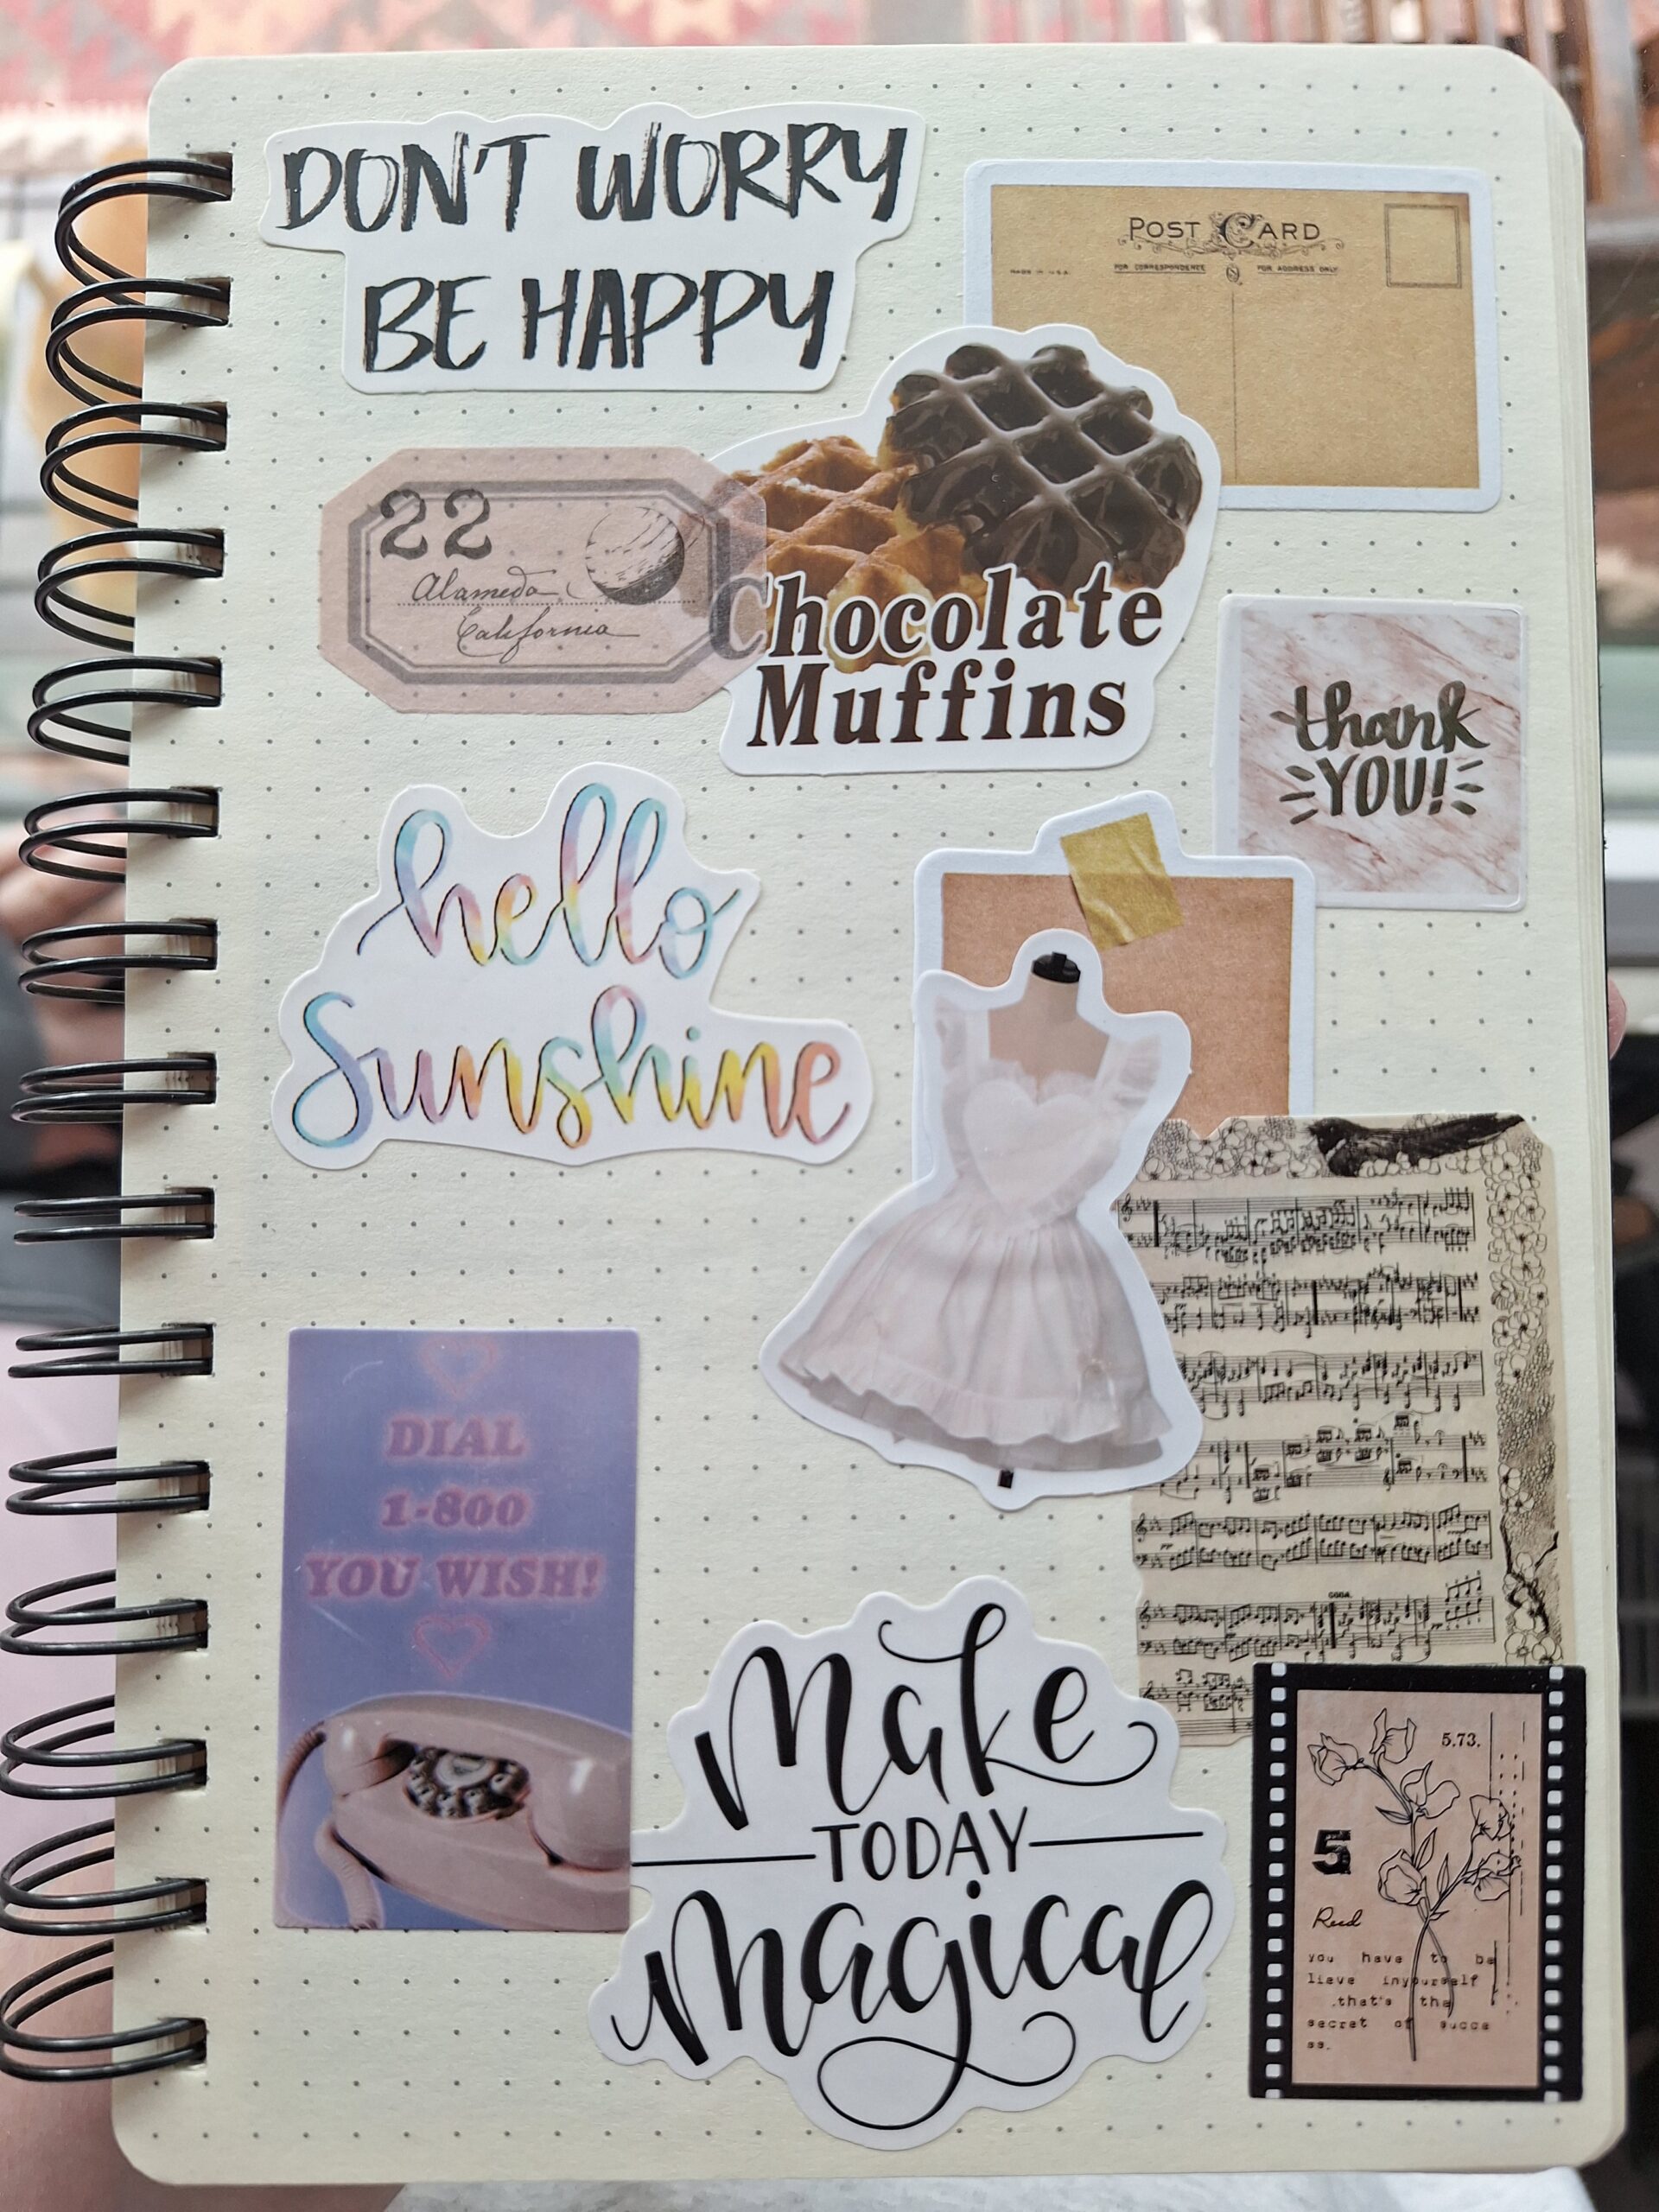 DON'T WORRY
BE HAPPY
POST CARD
MADE IN U.S.A.
FOR CORRESPONDENCE
FOR ADDRESS ONLY
22
Alameda
California
Chocolate
Muffins
thank
YOU!
hello
Sunshine
DIAL
1-800
YOU WISH!
CODA
Make
TODAY
Magical
5.73.
5
you have to be
lieve inyourself
.that's the
secret of succe
ss.